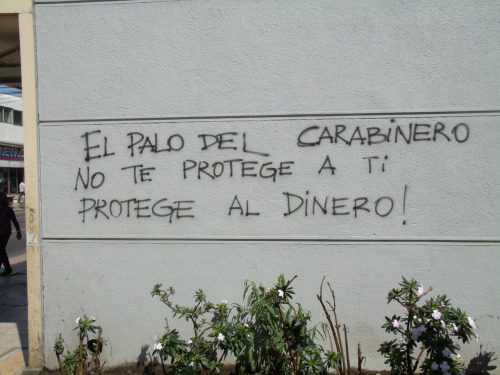 EL PALO DEL CARABINERO
NO TE PROTEGE A TI
PROTEGE AL DINERO!